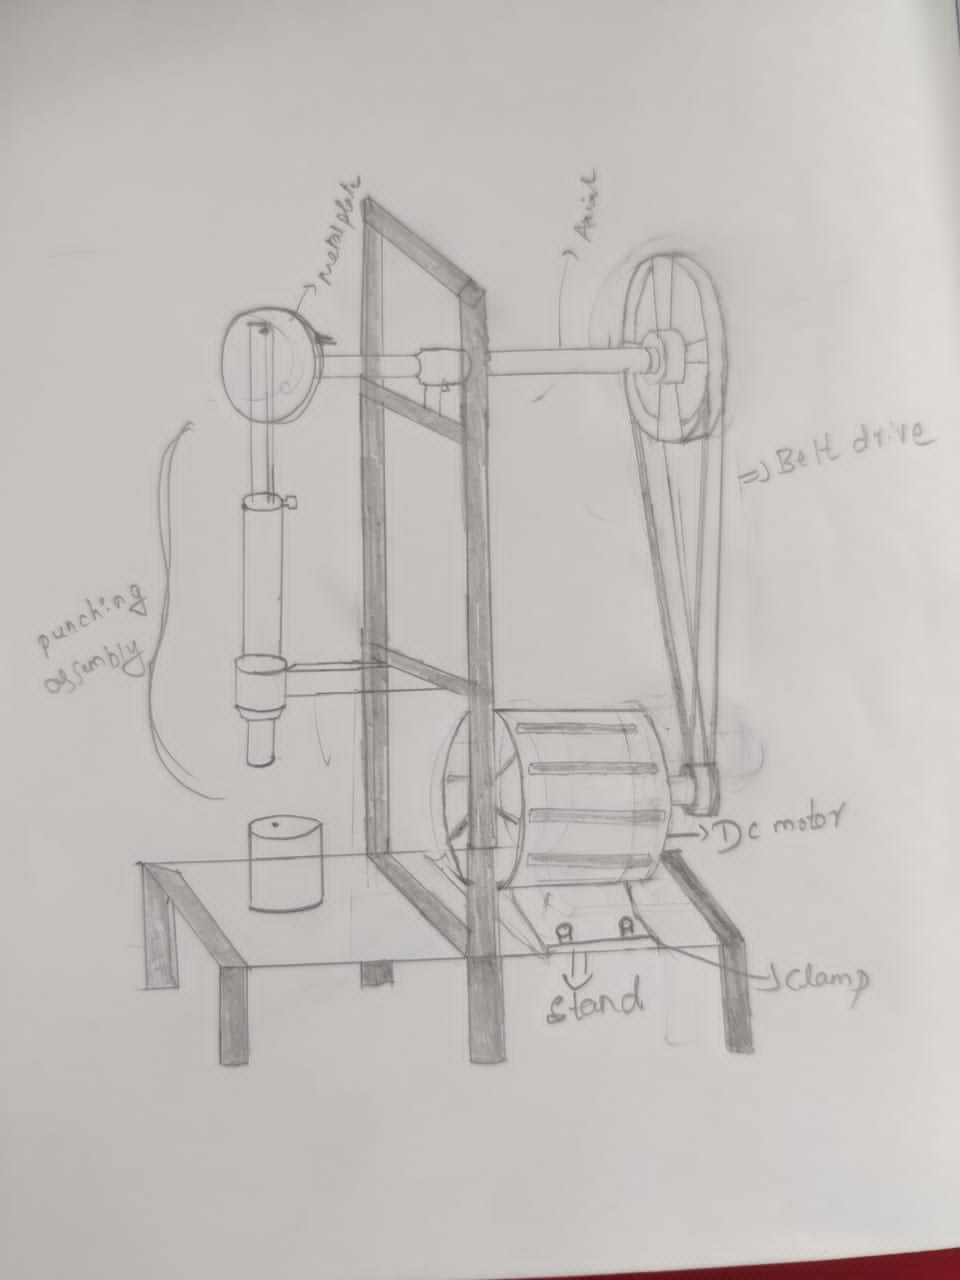 metal plate
Axial
=> Belt drive
punching
assembly
Dc motor
clamp
stand